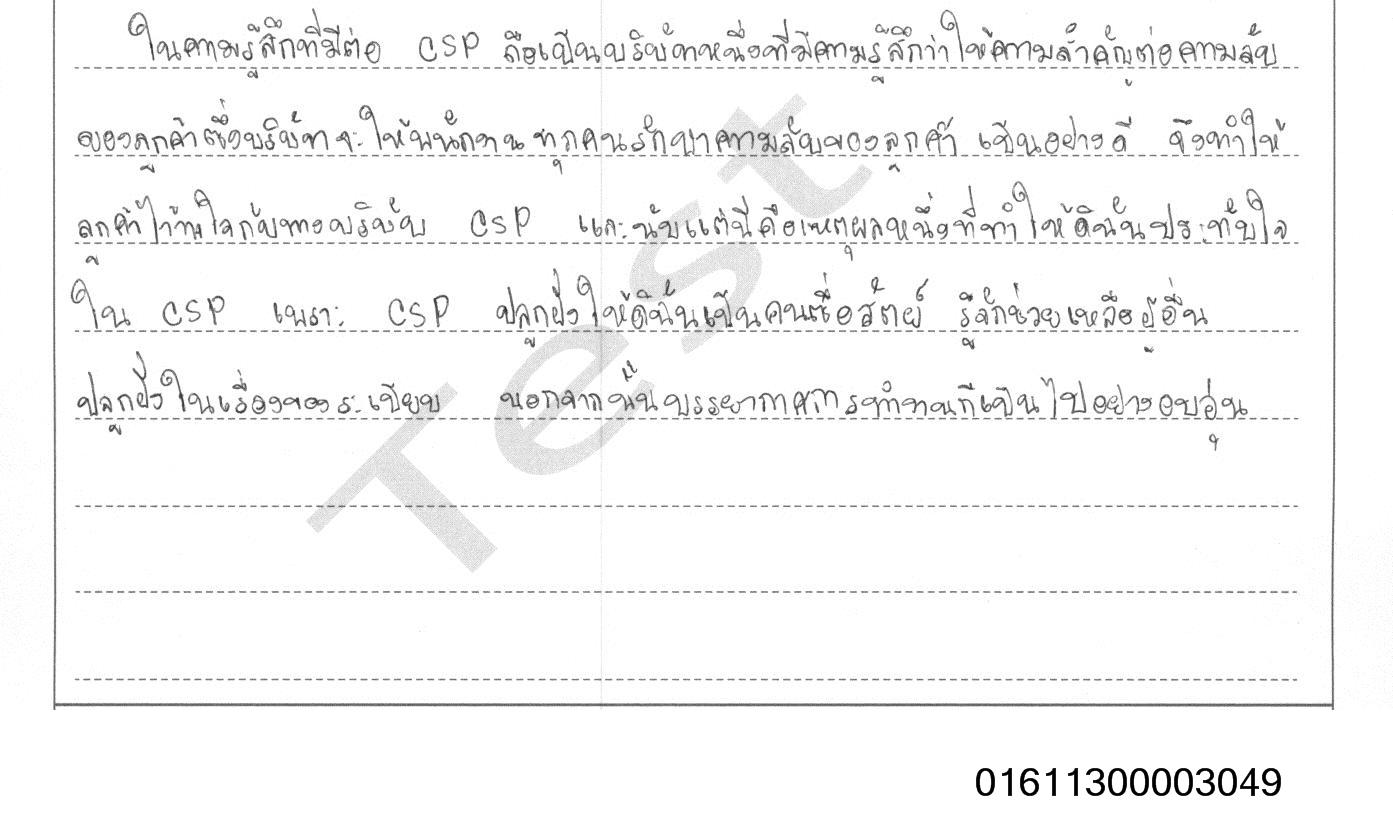 ในความรู้สึกที่มีต่อ CSP ถือเป็นบริษัทหนึ่งที่มีความรู้สึกว่าให้ความสำคัญต่อความลับ
ของลูกค้าซึ่งบริษัทจะให้พนักงานทุกคนรักษาความลับของลูกค้า เป็นอย่างดี จึงทำให้
ลูกค้าไว้วางใจกับทางบริษัท CSP และนับแต่นี้คือเหตุผลหนึ่งที่ทำให้ดิฉันประทับใจ
ใน CSP เพราะ CSP ปลูกฝังให้ดิฉันเป็นคนซื่อสัตย์ รู้จักช่วยเหลือผู้อื่น
ปลูกฝังในเรื่องของระเบียบ นอกจากนั้นบรรยากาศการทำงานก็เป็นไปอย่างอบอุ่น
Test
01611300003049